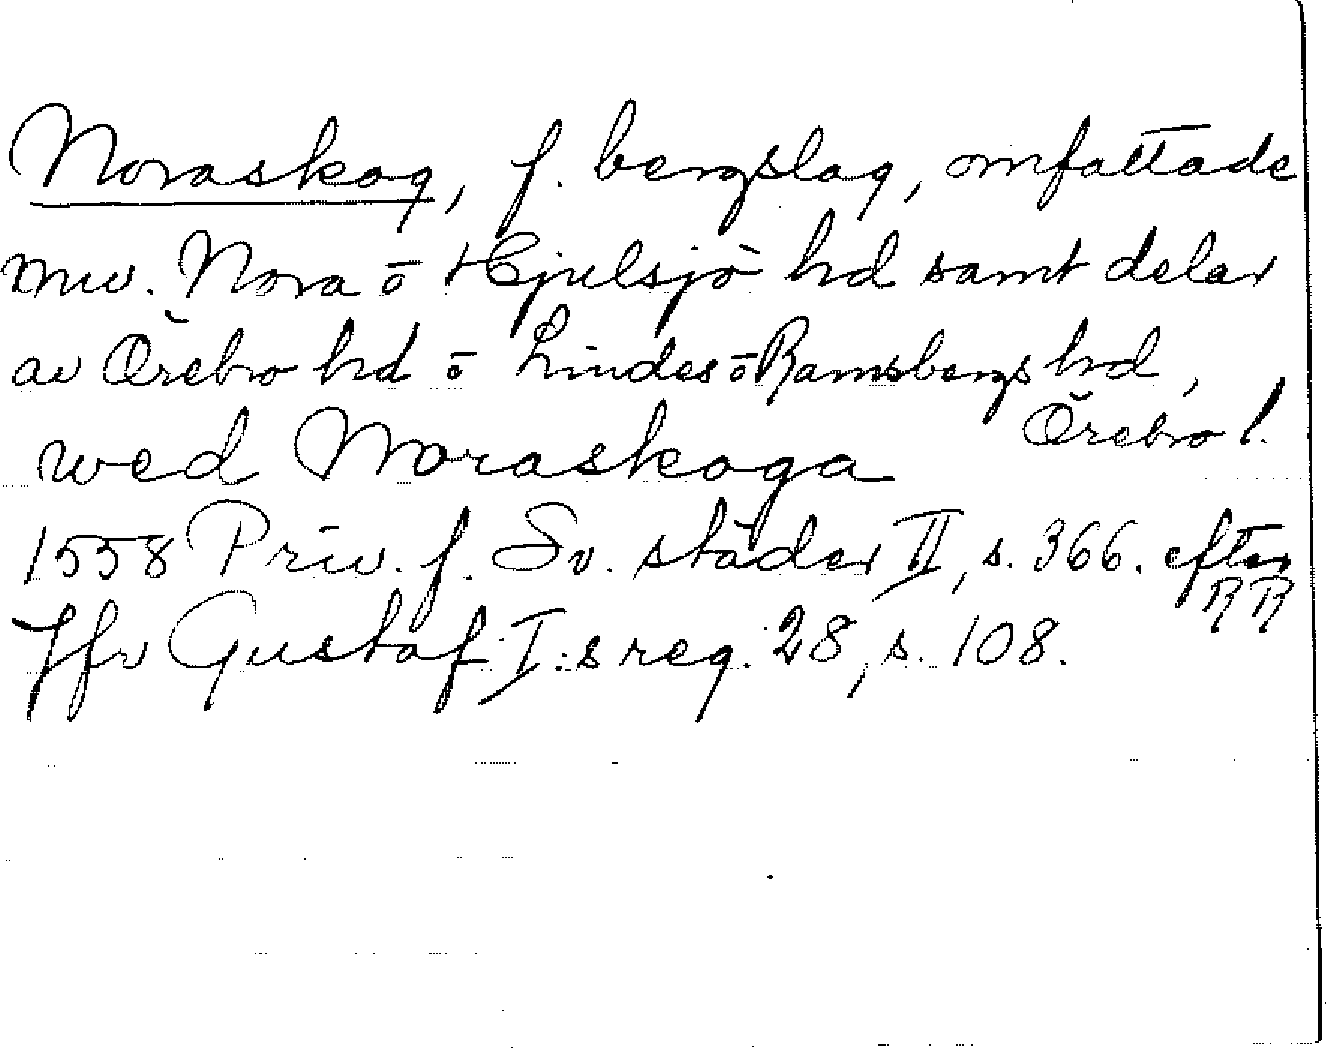 Noraskog, f. bergslag, omfattade
nuv. Nora o Hjulsjö hd samt delar
av Örebro hd o Lindes o Ramsbergs hd,
Örebro l.
wed Noraskoga
1558 Priv. f. Sv. städer II, s. 366. efter
RR
Jfr Gustaf I:s reg. 28, s. 108.